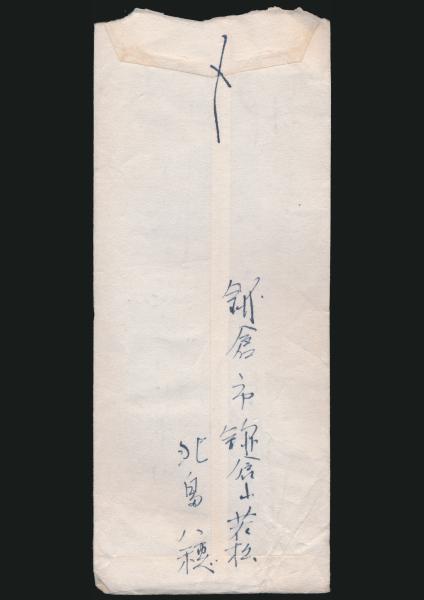 〆
鎌倉市鎌倉山若松
北畠八穂